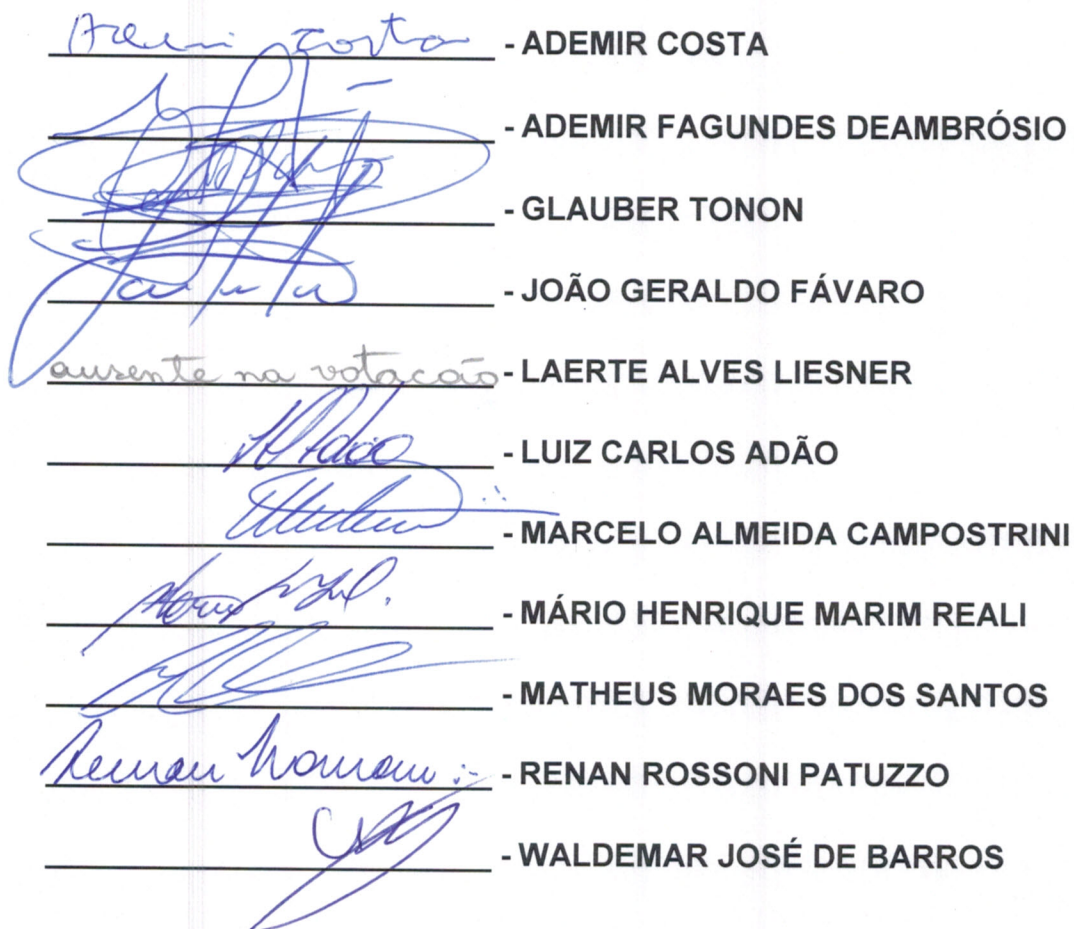 Ademir Costa - ADEMIR COSTA
- ADEMIR FAGUNDES DEAMBRÓSIO
- GLAUBER TONON
- JOÃO GERALDO FÁVARO
ausente na votação - LAERTE ALVES LIESNER
Adão - LUIZ CARLOS ADÃO
- MARCELO ALMEIDA CAMPOSTRINI
- MÁRIO HENRIQUE MARIM REALI
- MATHEUS MORAES DOS SANTOS
Renan - RENAN ROSSONI PATUZZO
- WALDEMAR JOSÉ DE BARROS